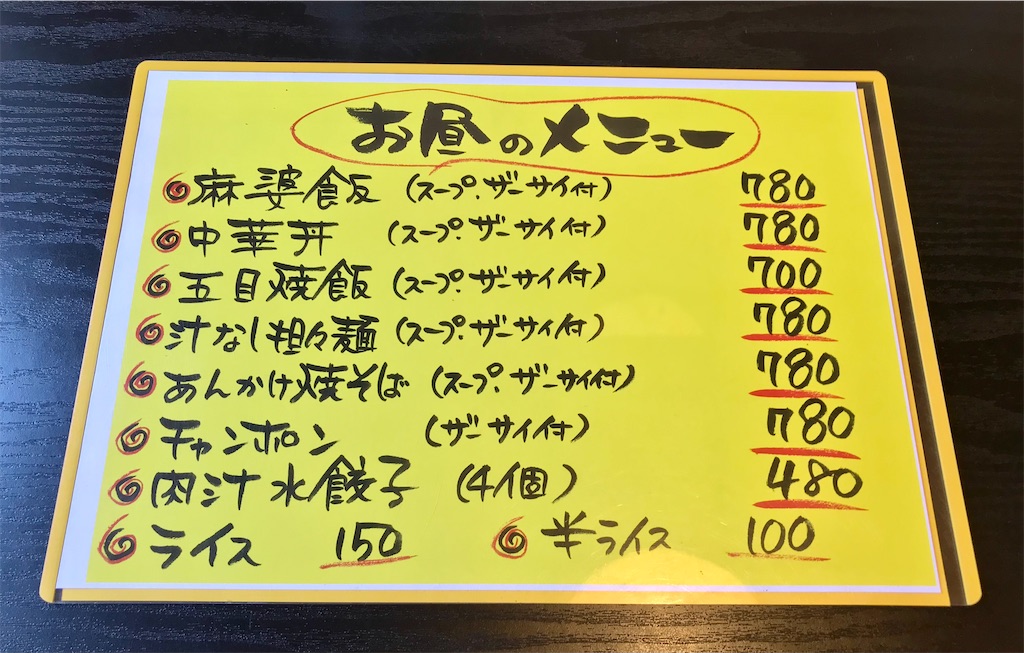 お昼のメニュー
麻婆飯 (スープ.ザーサイ付) 780
中華丼 (スープ.ザーサイ付) 780
五目焼飯 (スープ.ザーサイ付) 700
汁なし担々麺 (スープ.ザーサイ付) 780
あんかけ焼そば (スープ.ザーサイ付) 780
チャンポン (ザーサイ付) 780
肉汁水餃子 (4個) 480
ライス 150 半ライス 100